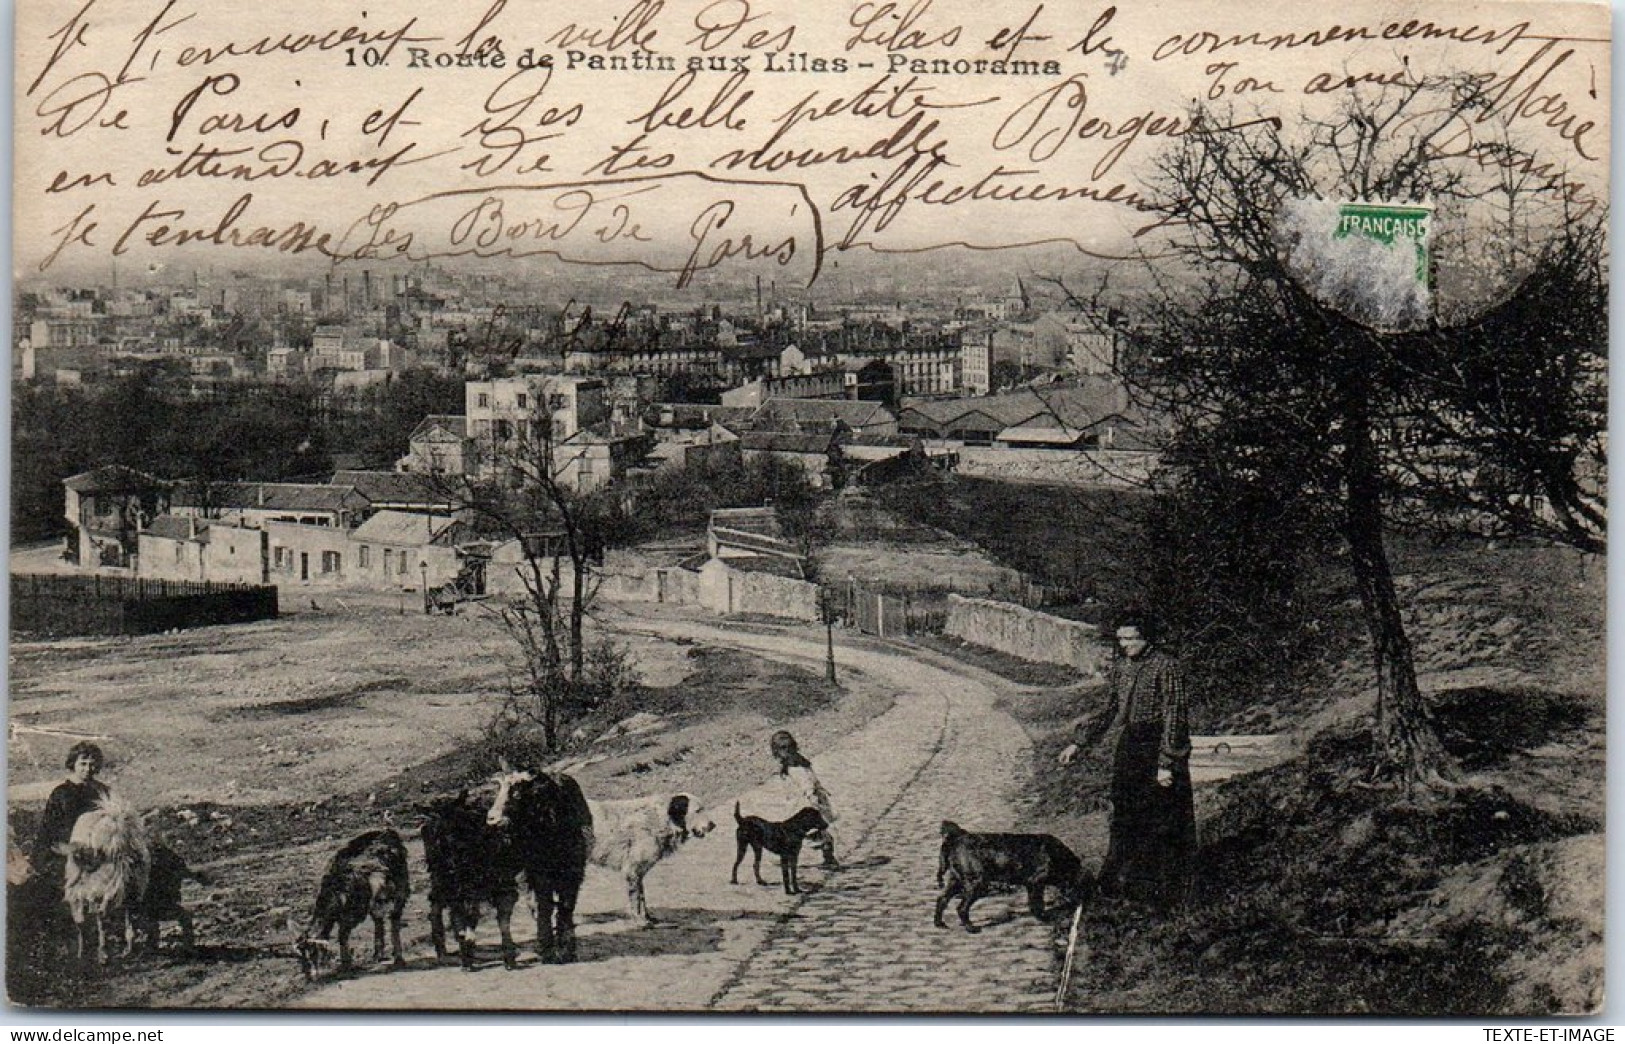 je t'envoient la ville Des Lilas et le commencement
10. Route de Pantin aux Lilas - Panorama
De Paris, et Des belle petite Bergers
Ton ami Marie
en attendant De tes nouvelle affectuement
je t'enbrasse Les Bord de Paris
FRANÇAISE
TEXTE-ET-IMAGE